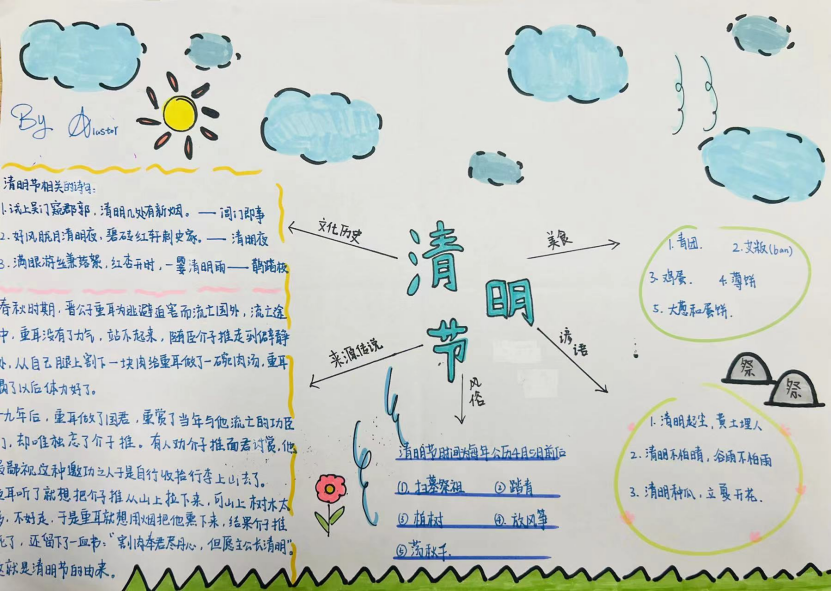 By Aluster
清明节相关的诗句:
清明几处有新烟。——阊门即事
2. 好风胧月清明夜,碧砌红轩刺史家。——清明夜
3. 满眼游丝兼落絮,红杏开时,一霎清明雨——鹊踏枝
春秋时期,晋公子重耳为逃避迫害而流亡国外,流亡途
中,重耳没有了力气,站不起来,随臣介子推走到僻静
处,从自己腿上割下一块肉给重耳做了一碗肉汤,重耳
喝了以后体力好了。
十九年后,重耳做了国君,重赏了当年与他流亡的功臣
们,却唯独忘了介子推。有人劝介子推面君讨赏,他
最鄙视这种邀功之人于是自行收拾行李上山去了。
重耳听了就想把介子推从山上找下来,可山上树木太
多,不好走,于是重耳就想用烟把他熏下来,结果介子推
死了,还留下了一血书:“割肉奉君尽丹心,但愿主公长清明”。
这就是清明节的由来。
文化历史
来源传说
清明节
美食
谚语
风俗
清明节时间为每年公历4月5日前后
①. 扫墓祭祖 ② 踏青
③ 植树 ④. 放风筝
⑤ 荡秋千.
1. 青团. 2. 艾粄(ban)
3. 鸡蛋. 4. 薄饼
5. 大葱和蛋饼.
祭
祭
1. 清明起尘,黄土埋人
2. 清明不怕晴,谷雨不怕雨
3. 清明种瓜,立夏开花.